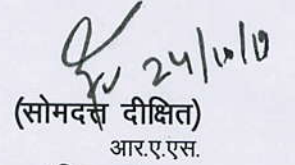 24/10/19
(सोमदत्त दीक्षित)
आर.ए.एस.